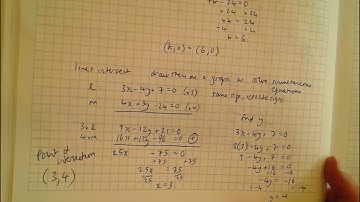 4k - 24 = 0
+ 24 + 24
4k = 24
4 4
k = 6
(k,0) = (6,0)
lines intersect draw them on a graph or solve simultaneous
equations
l 3x - 4y + 7 = 0 (x3) same sign, opposite signs
m 4x + 3y - 24 = 0 (x4)
3xl 9x - 12y + 21 = 0
4xm 16x + 12y - 96 = 0 +
25x - 75 = 0
+75 +75
25x = 75
25 25
x = 3
find y
3x - 4y + 7 = 0
3(3) - 4y + 7 = 0
9 - 4y + 7 = 0
-4y + 16 = 0
-16 -16
-4y = -16
-4 -4
y = 4
Point of
intersection
(3,4)